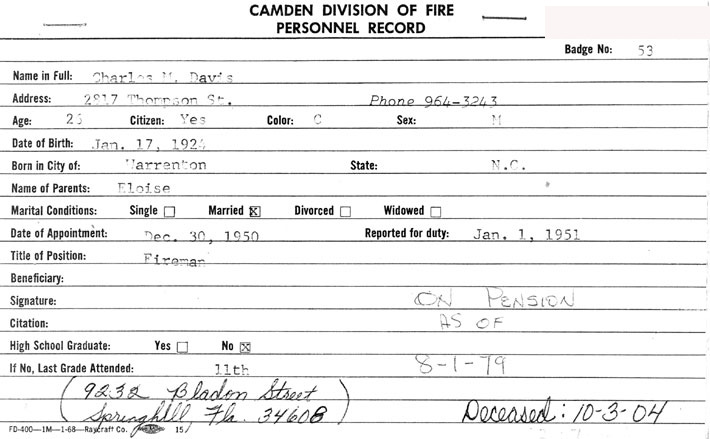 CAMDEN DIVISION OF FIRE
PERSONNEL RECORD
Badge No: 53
Name in Full: Charles M. Davis
Address: 2817 Thompson St. Phone 964-3243
Age: Citizen: Yes Color: C Sex: M
Date of Birth: Jan. 17,
Born in City of: Warrenton State: N.C.
Name of Parents: Eloise
Marital Conditions: Single ☐ Married ☒ Divorced ☐ Widowed ☐
Date of Appointment: Dec. 30, 1950 Reported for duty: Jan. 1, 1951
Title of Position: Fireman
Beneficiary:
Signature: ON PENSION
Citation: AS OF
High School Graduate: Yes ☐ No ☒
If No, Last Grade Attended: 11th 8-1-79
(9232 Bladon Street
Springhill Fla. 34608) Deceased: 10-3-04
FD-400—1M—1-68—Raycraft Co. 15